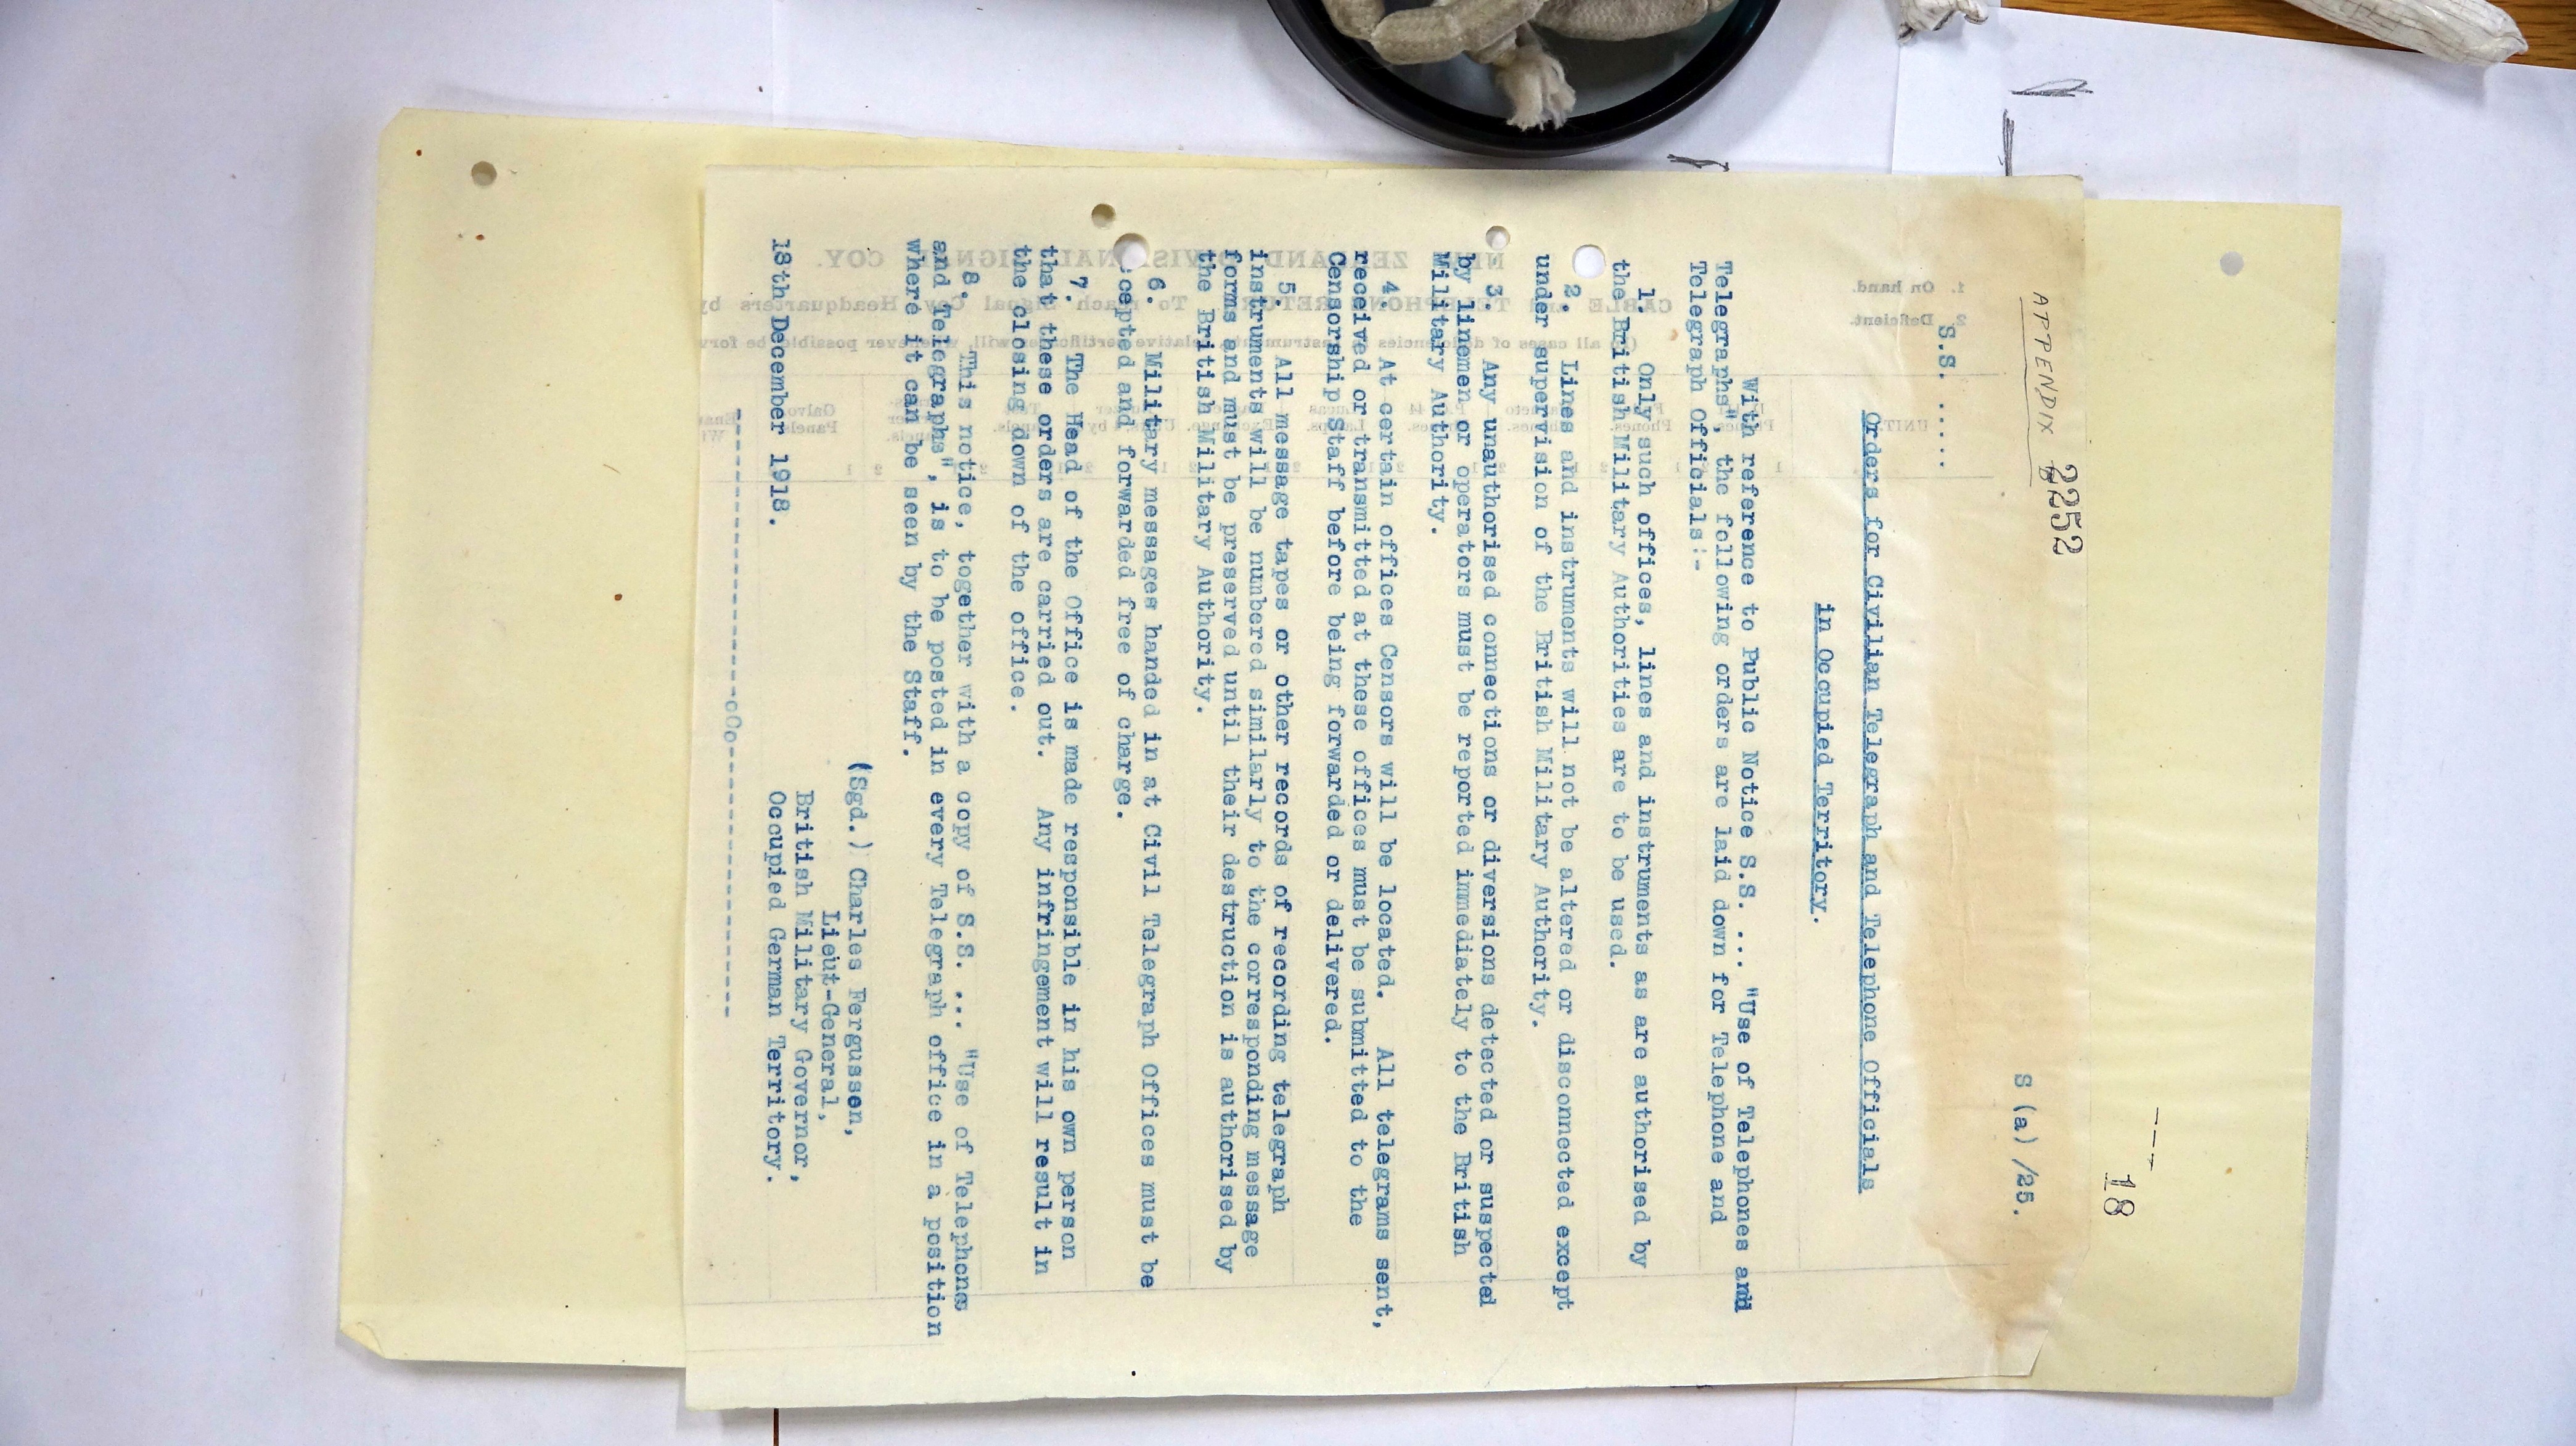 18
2252
APPENDIX
S (a) /25.
S.S. .....
Orders for Civilian Telegraph and Telephone Officials
in Occupied Territory.
With reference to Public Notice S.S. ... "Use of Telephones and
Telegraphs", the following orders are laid down for Telephone and
Telegraph Officials:-
1. Only such offices, lines and instruments as are authorised by
the British Military Authorities are to be used.
2. Lines and instruments will not be altered or disconnected except
under supervision of the British Military Authority.
3. Any unauthorised connections or diversions detected or suspected
by linemen or operators must be reported immediately to the British
Military Authority.
4. At certain offices Censors will be located. All telegrams sent,
received or transmitted at these offices must be submitted to the
Censorship Staff before being forwarded or delivered.
5. All message tapes or other records of recording telegraph
instruments will be numbered similarly to the corresponding message
forms and must be preserved until their destruction is authorised by
the British Military Authority.
6. Military messages handed in at Civil Telegraph Offices must be
ccepted and forwarded free of charge.
7. The Head of the Office is made responsible in his own person
that these orders are carried out. Any infringement will result in
the closing down of the office.
8. This notice, together with a copy of S.S. ... "Use of Telephones
and Telegraphs", is to be posted in every Telegraph office in a position
where it can be seen by the Staff.
(Sgd.) Charles Fergusson,
Lieut-General,
British Military Governor,
Occupied German Territory.
13th December 1918.
-----------------------oOo-----------------------
NEW ZEALAND DIVISIONAL SIGNAL COY.
1. On hand.
2. Deficient.
UNIT.